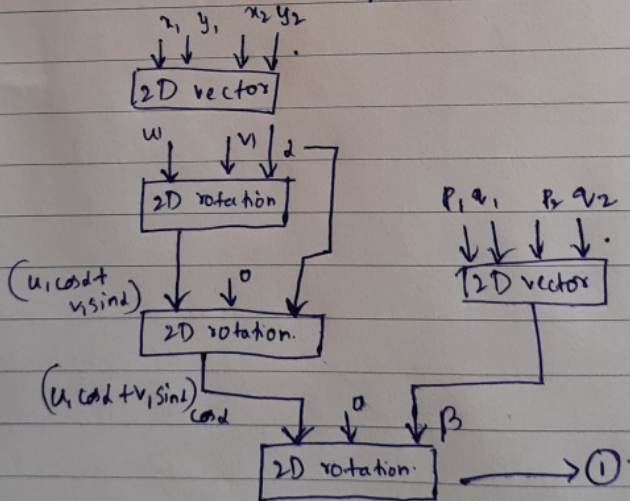 x₁ y₁ x₂ y₂
2D vector
u₁ v₁ α
2D rotation
p₁ q₁ p₂ q₂
2D vector
(u₁ cosα + v₁ sinα)
0
2D rotation.
(u₁ cosα + v₁ sinα) cosα
0
β
2D rotation.
①